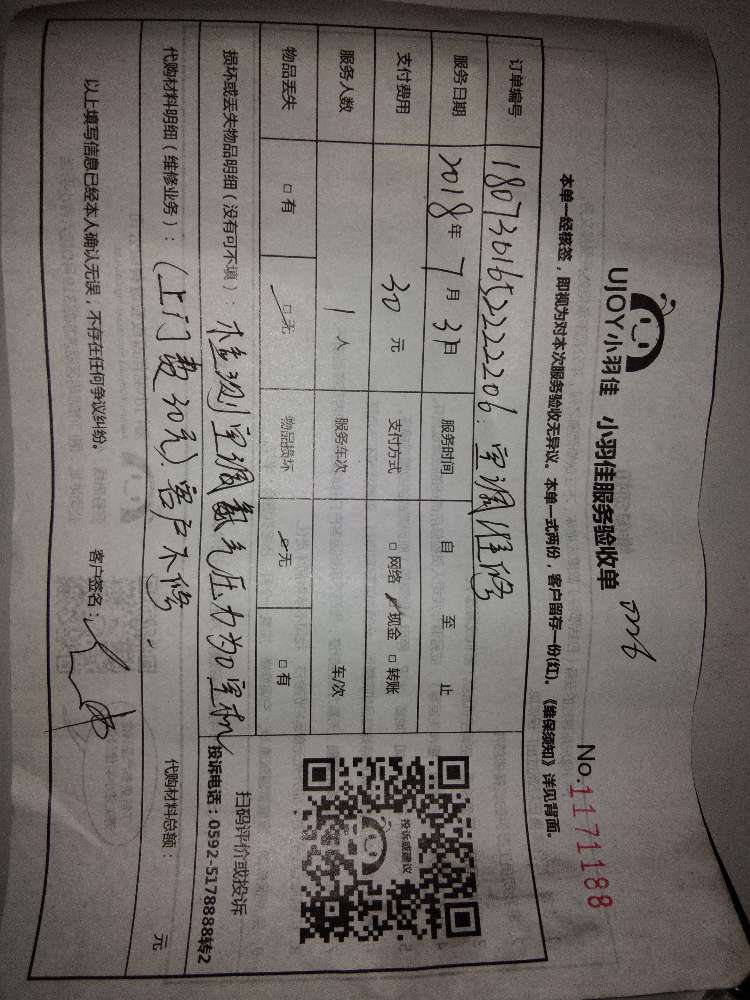 UJOY小羽佳 小羽佳服务验收单
No.1171188
本单一经核签，即视为对本次服务验收无异议。本单一式两份，客户留存一份(红)。《维保须知》详见背面。
订单编号 空调维修
服务日期 2018年7月31日 服务时间 自 至 止
支付费用 30元 支付方式 □网络 □现金 □转账
服务人数 1人 服务车次 车/次
物品丢失 □有 □无 物品损坏 □无 □有
投诉或建议
扫码评价或投诉
投诉电话：0592-5178888转2
损坏或丢失物品明细（没有可不填）：检测空调氟气压力为0空机
代购材料明细（维修业务）：(上门费30元) 客户不修
代购材料总额： 元
以上填写信息已经本人确认无误，不存在任何争议纠纷。 客户签名：